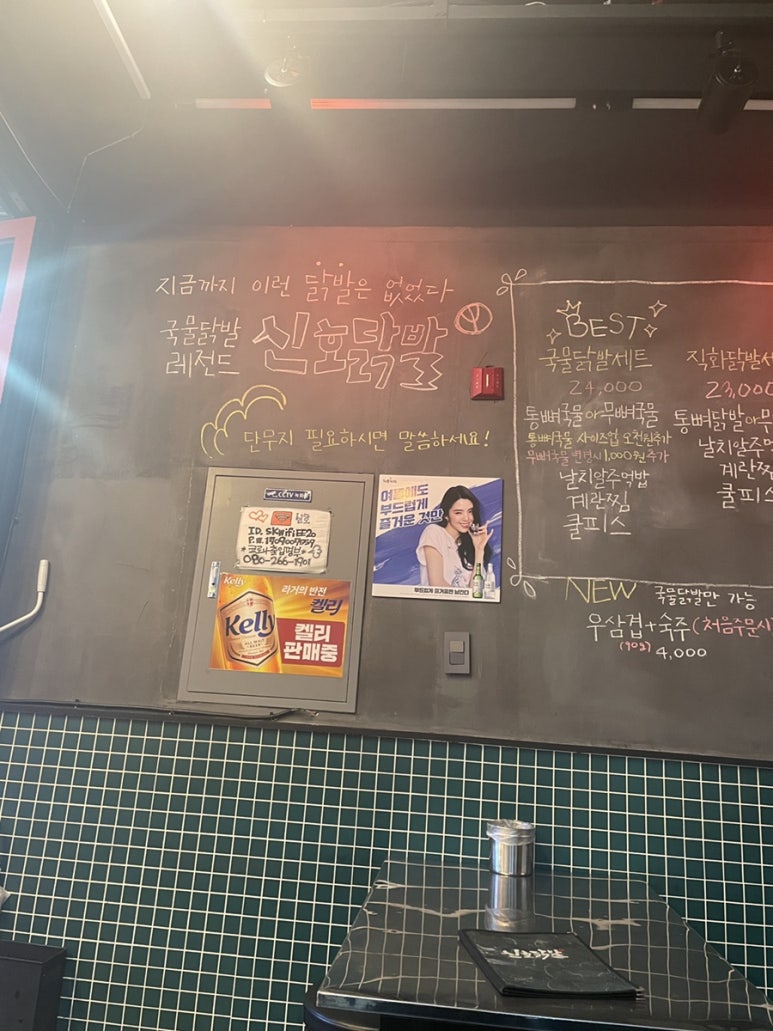 지금까지 이런 닭발은 없었다
국물닭발
레전드
신호닭발
단무지 필요하시면 말씀하세요!
CCTV
ID. SKWifiEE20
P.W. 1909009059
*코로나출입명부*
080-266-1901
Kelly
라거의 반전
켈리
Kelly
켈리
판매중
여름에도
부드럽게
즐거운 것만
부드럽게 즐거움만 남긴다
BEST
국물닭발세트
24,000
통뼈국물 or 무뼈국물
통뼈국물 사이즈업 오천원추가
무뼈국물 변경시 1,000원 추가
날치알주먹밥
계란찜
쿨피스
직화닭발세
23,000
통뼈닭발 or 무
날치알주먹
계란찜
쿨피스
NEW
국물닭발만 가능
우삼겹+숙주 (처음주문시
(90g)
4,000
신호닭발